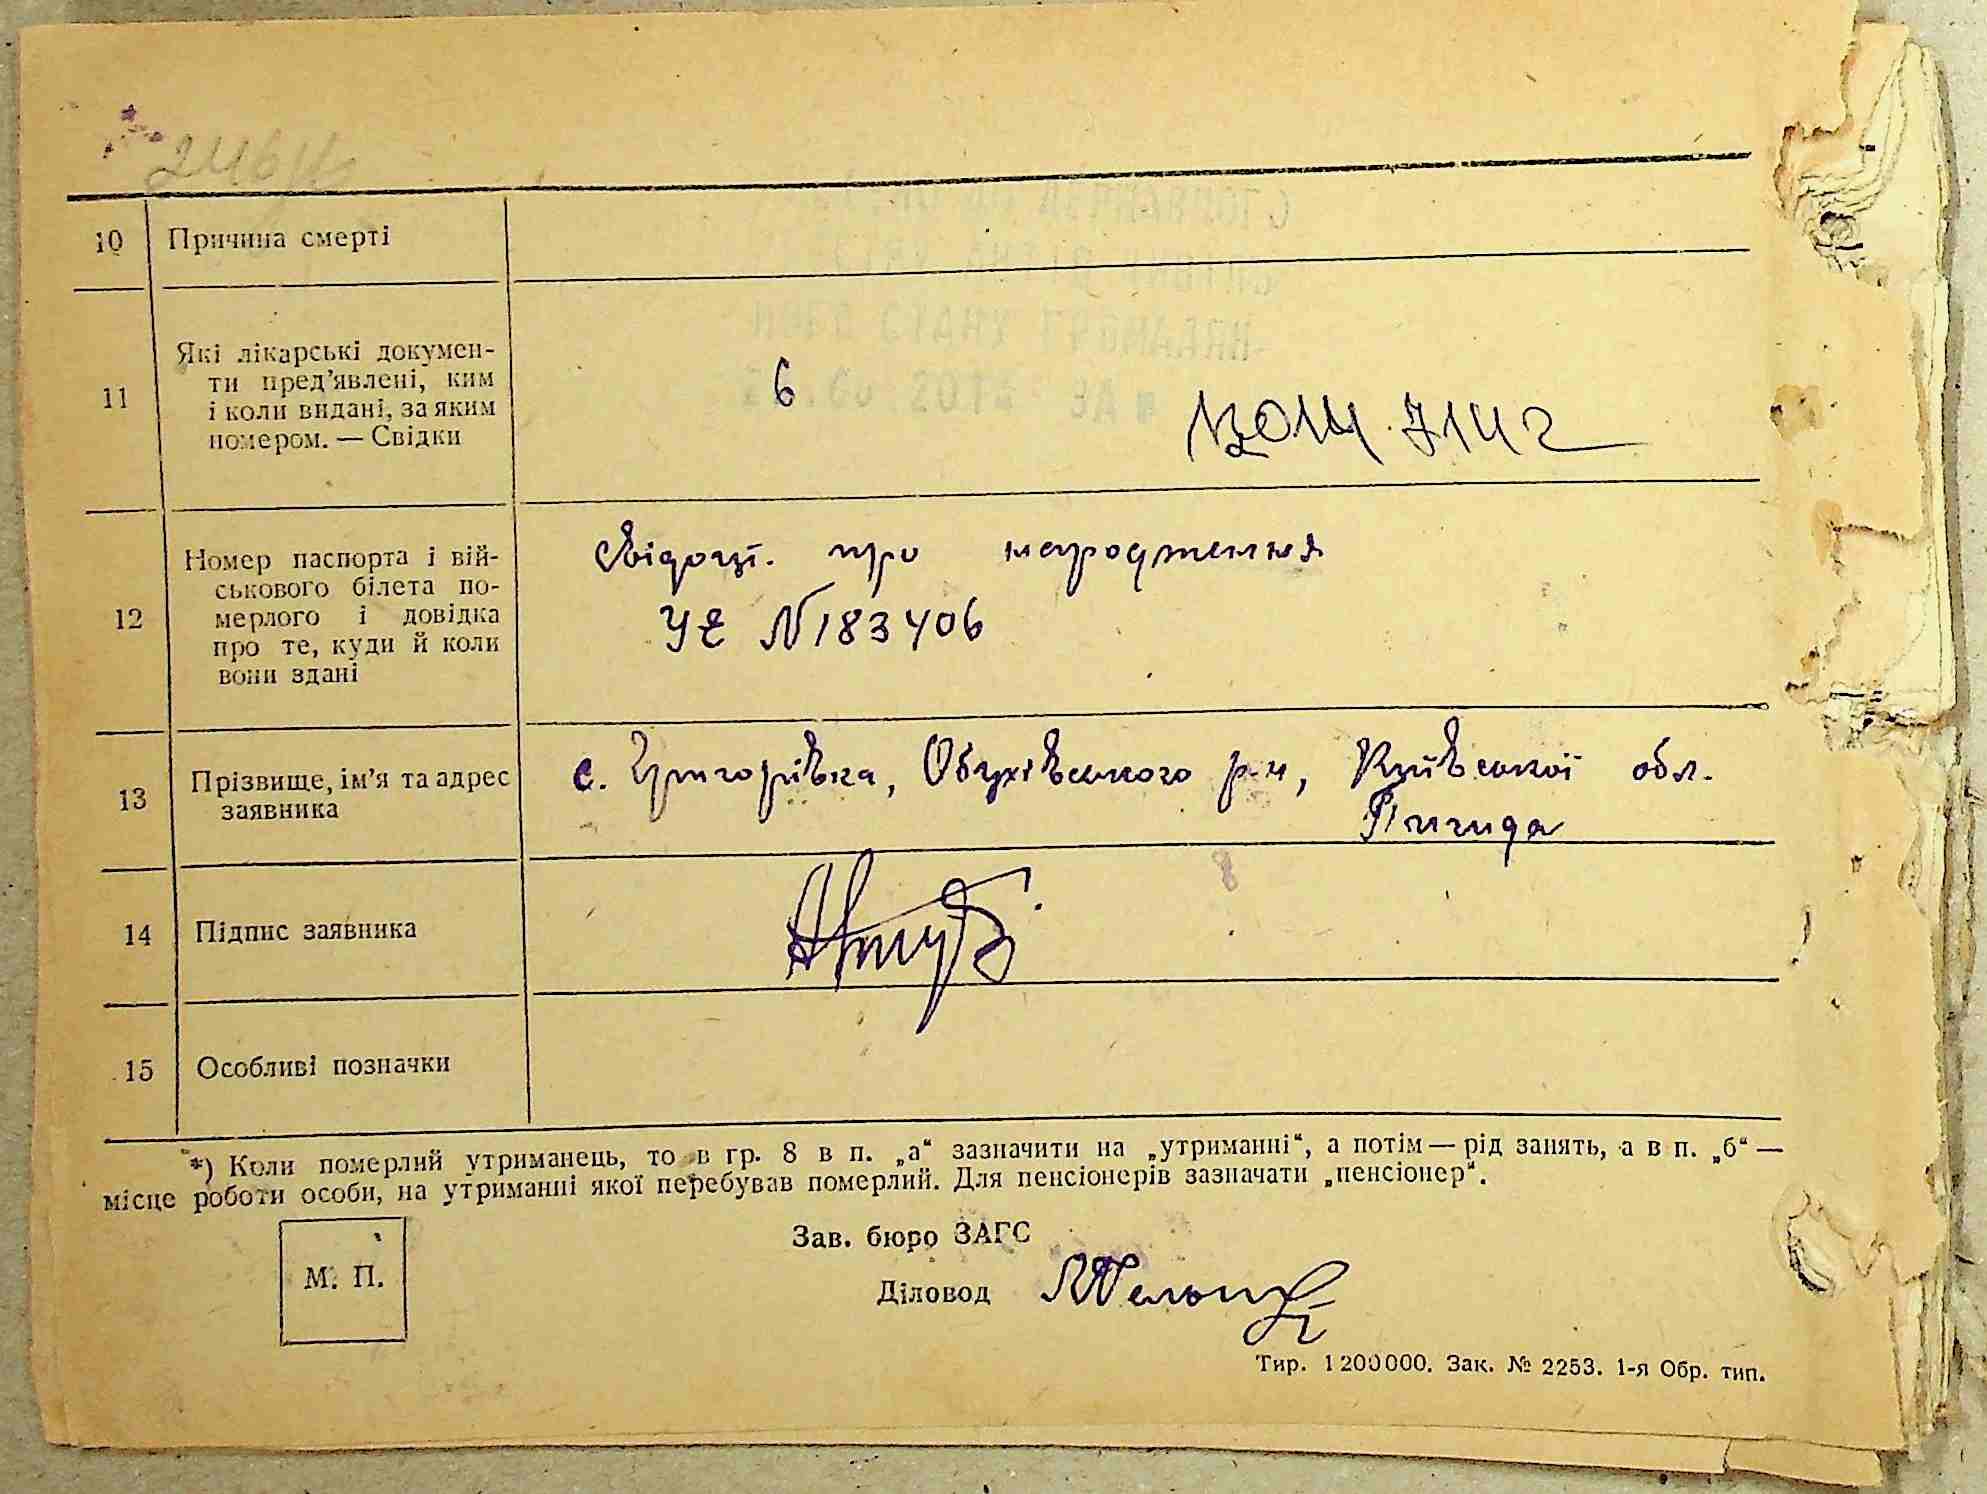 10 Причина смерті
11 Які лікарські докумен-
ти пред’явлені, ким
і коли видані, за яким
номером. — Свідки
6
12 Номер паспорта і вій-
ськового білета по-
мерлого і довідка
про те, куди й коли
вони здані
свідоц. про народження
УЕ N 183406
13 Прізвище, ім’я та адрес
заявника
с. Григорівка, Обухівського р-н, Київської обл.
14 Підпис заявника
15 Особливі позначки
*) Коли померлий утриманець, то в гр. 8 в п. „а“ зазначити на „утриманні“, а потім — рід занять, а в п. „б“ —
місце роботи особи, на утриманні якої перебував померлий. Для пенсіонерів зазначати „пенсіонер“.
Зав. бюро ЗАГС
М. П.
Діловод
Тир. 1200000. Зак. № 2253. 1-я Обр. тип.